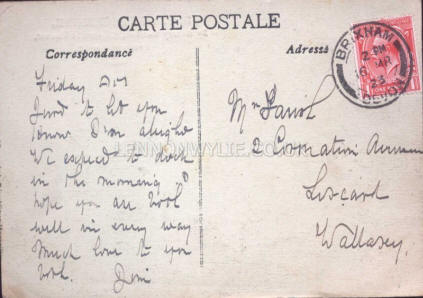 CARTE POSTALE
Correspondance
Adresse
BRIXHAM
2 PM
MAR
23
DEVON
Friday
Just to let you
know I'm alright
We expect to dock
in the morning. I
hope you are both
well in every way
Much love to you
both. Jim
Mrs
2 Coronation Avenue
Liscard
Wallasey.
LENNONWYLIE.CO.UK